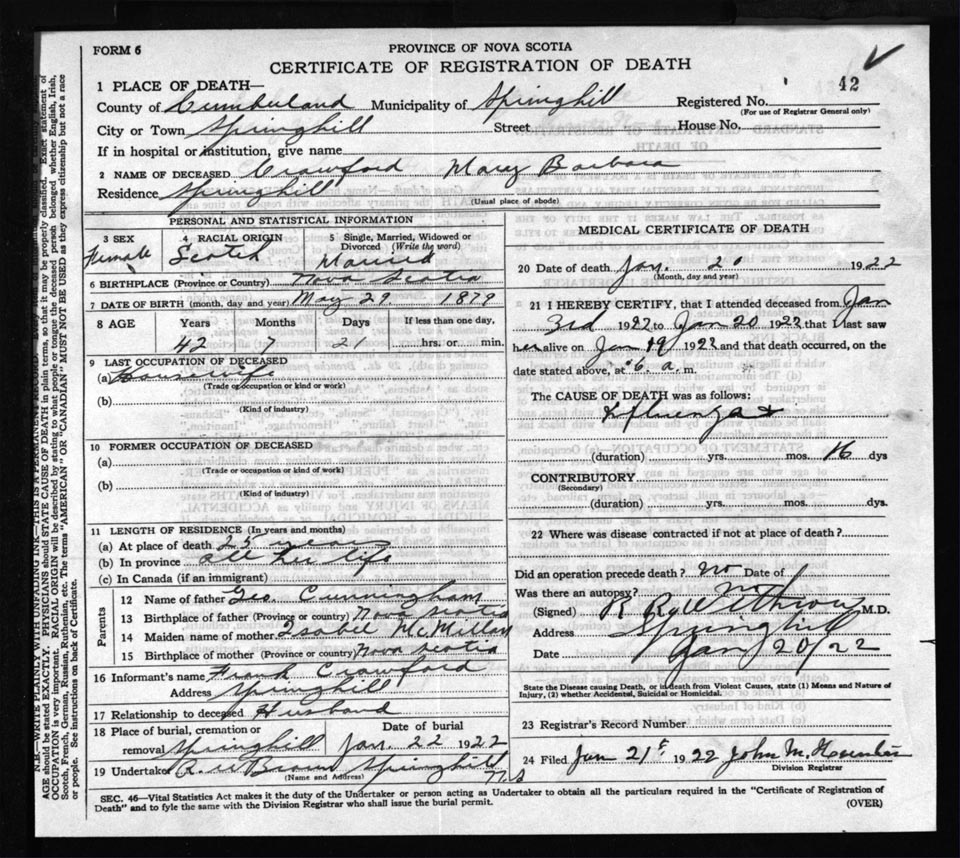 FORM 6
PROVINCE OF NOVA SCOTIA
CERTIFICATE OF REGISTRATION OF DEATH
42
1 PLACE OF DEATH—
County of Cumberland Municipality of Springhill Registered No.
(For use of Registrar General only)
City or Town Springhill Street House No.
If in hospital or institution, give name
2 NAME OF DECEASED Crawford Mary Barbara
Residence Springhill
(Usual place of abode)
PERSONAL AND STATISTICAL INFORMATION
3 SEX
Female
4 RACIAL ORIGIN
Scotch
5 Single, Married, Widowed or Divorced (Write the word)
Married
6 BIRTHPLACE (Province or Country) Nova Scotia
7 DATE OF BIRTH (month, day and year) May 29 1879
8 AGE Years Months Days If less than one day,
42 7 21 hrs. or min.
9 LAST OCCUPATION OF DECEASED
(a) Housewife
(Trade or occupation or kind or work)
(b)
(Kind of industry)
10 FORMER OCCUPATION OF DECEASED
(a)
(Trade or occupation or kind or work)
(b)
(Kind of industry)
11 LENGTH OF RESIDENCE (In years and months)
(a) At place of death 25 years
(b) In province all her life
(c) In Canada (if an immigrant)
Parents
12 Name of father Geo. Cunningham
13 Birthplace of father (Province or country) Nova Scotia
14 Maiden name of mother Isabel McMillan
15 Birthplace of mother (Province or country) Nova Scotia
16 Informant's name Frank Crawford
Address Springhill
17 Relationship to deceased Husband
18 Place of burial, cremation or removal Springhill
Date of burial
Jan. 22 1922
19 Undertaker Brown Springhill N.S
(Name and Address)
MEDICAL CERTIFICATE OF DEATH
20 Date of death Jan. 20 1922
(Month, day and year)
21 I HEREBY CERTIFY, that I attended deceased from Jan
3rd 1922 to Jan 20 1922 that I last saw
her alive on Jan 19 1922 and that death occurred, on the
date stated above, at 6. a. m.
The CAUSE OF DEATH was as follows:
(duration) yrs. mos. 16 dys
CONTRIBUTORY
(Secondary)
(duration) yrs. mos. dys.
22 Where was disease contracted if not at place of death?
Did an operation precede death? no Date of
Was there an autopsy? no
(Signed) M.D.
Address Springhill
Date Jan 20/22
State the Disease causing Death, or in death from Violent Causes, state (1) Means and Nature of
Injury, (2) whether Accidental, Suicidal or Homicidal.
23 Registrar's Record Number
24 Filed Jan 21st 1922 John M.
Division Registrar
SEC. 46—Vital Statistics Act makes it the duty of the Undertaker or person acting as Undertaker to obtain all the particulars required in the "Certificate of Registration of
Death" and to fyle the same with the Division Registrar who shall issue the burial permit.
(OVER)
N.B.—WRITE PLAINLY WITH UNFADING INK—THIS IS A PERMANENT RECORD.
AGE should be stated EXACTLY. PHYSICIANS should STATE CAUSE OF DEATH in plain terms, so that it may be properly classified. Exact statement of
OCCUPATION is very important. RACIAL ORIGIN will be described by stating to what people or tongue the deceased person belonged whether English, Irish,
Scotch, French, German, Russian, Ruthenian, etc. The terms "AMERICAN" OR "CANADIAN" MUST NOT BE USED as they express citizenship but not a race
or people. See instructions on back of Certificate.